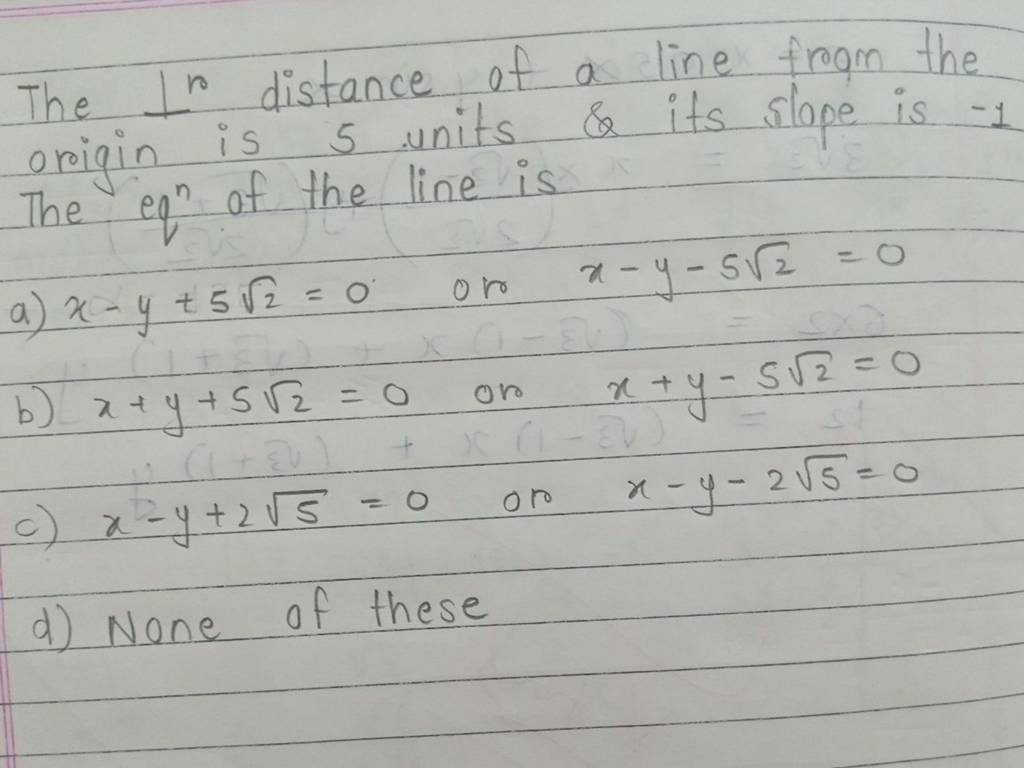 The ⊥r distance of a line from the
origin is 5 units & its slope is -1
The eqn of the line is
a) x - y + 5√2 = 0 or x - y - 5√2 = 0
b) x + y + 5√2 = 0 or x + y - 5√2 = 0
c) x - y + 2√5 = 0 or x - y - 2√5 = 0
d) None of these